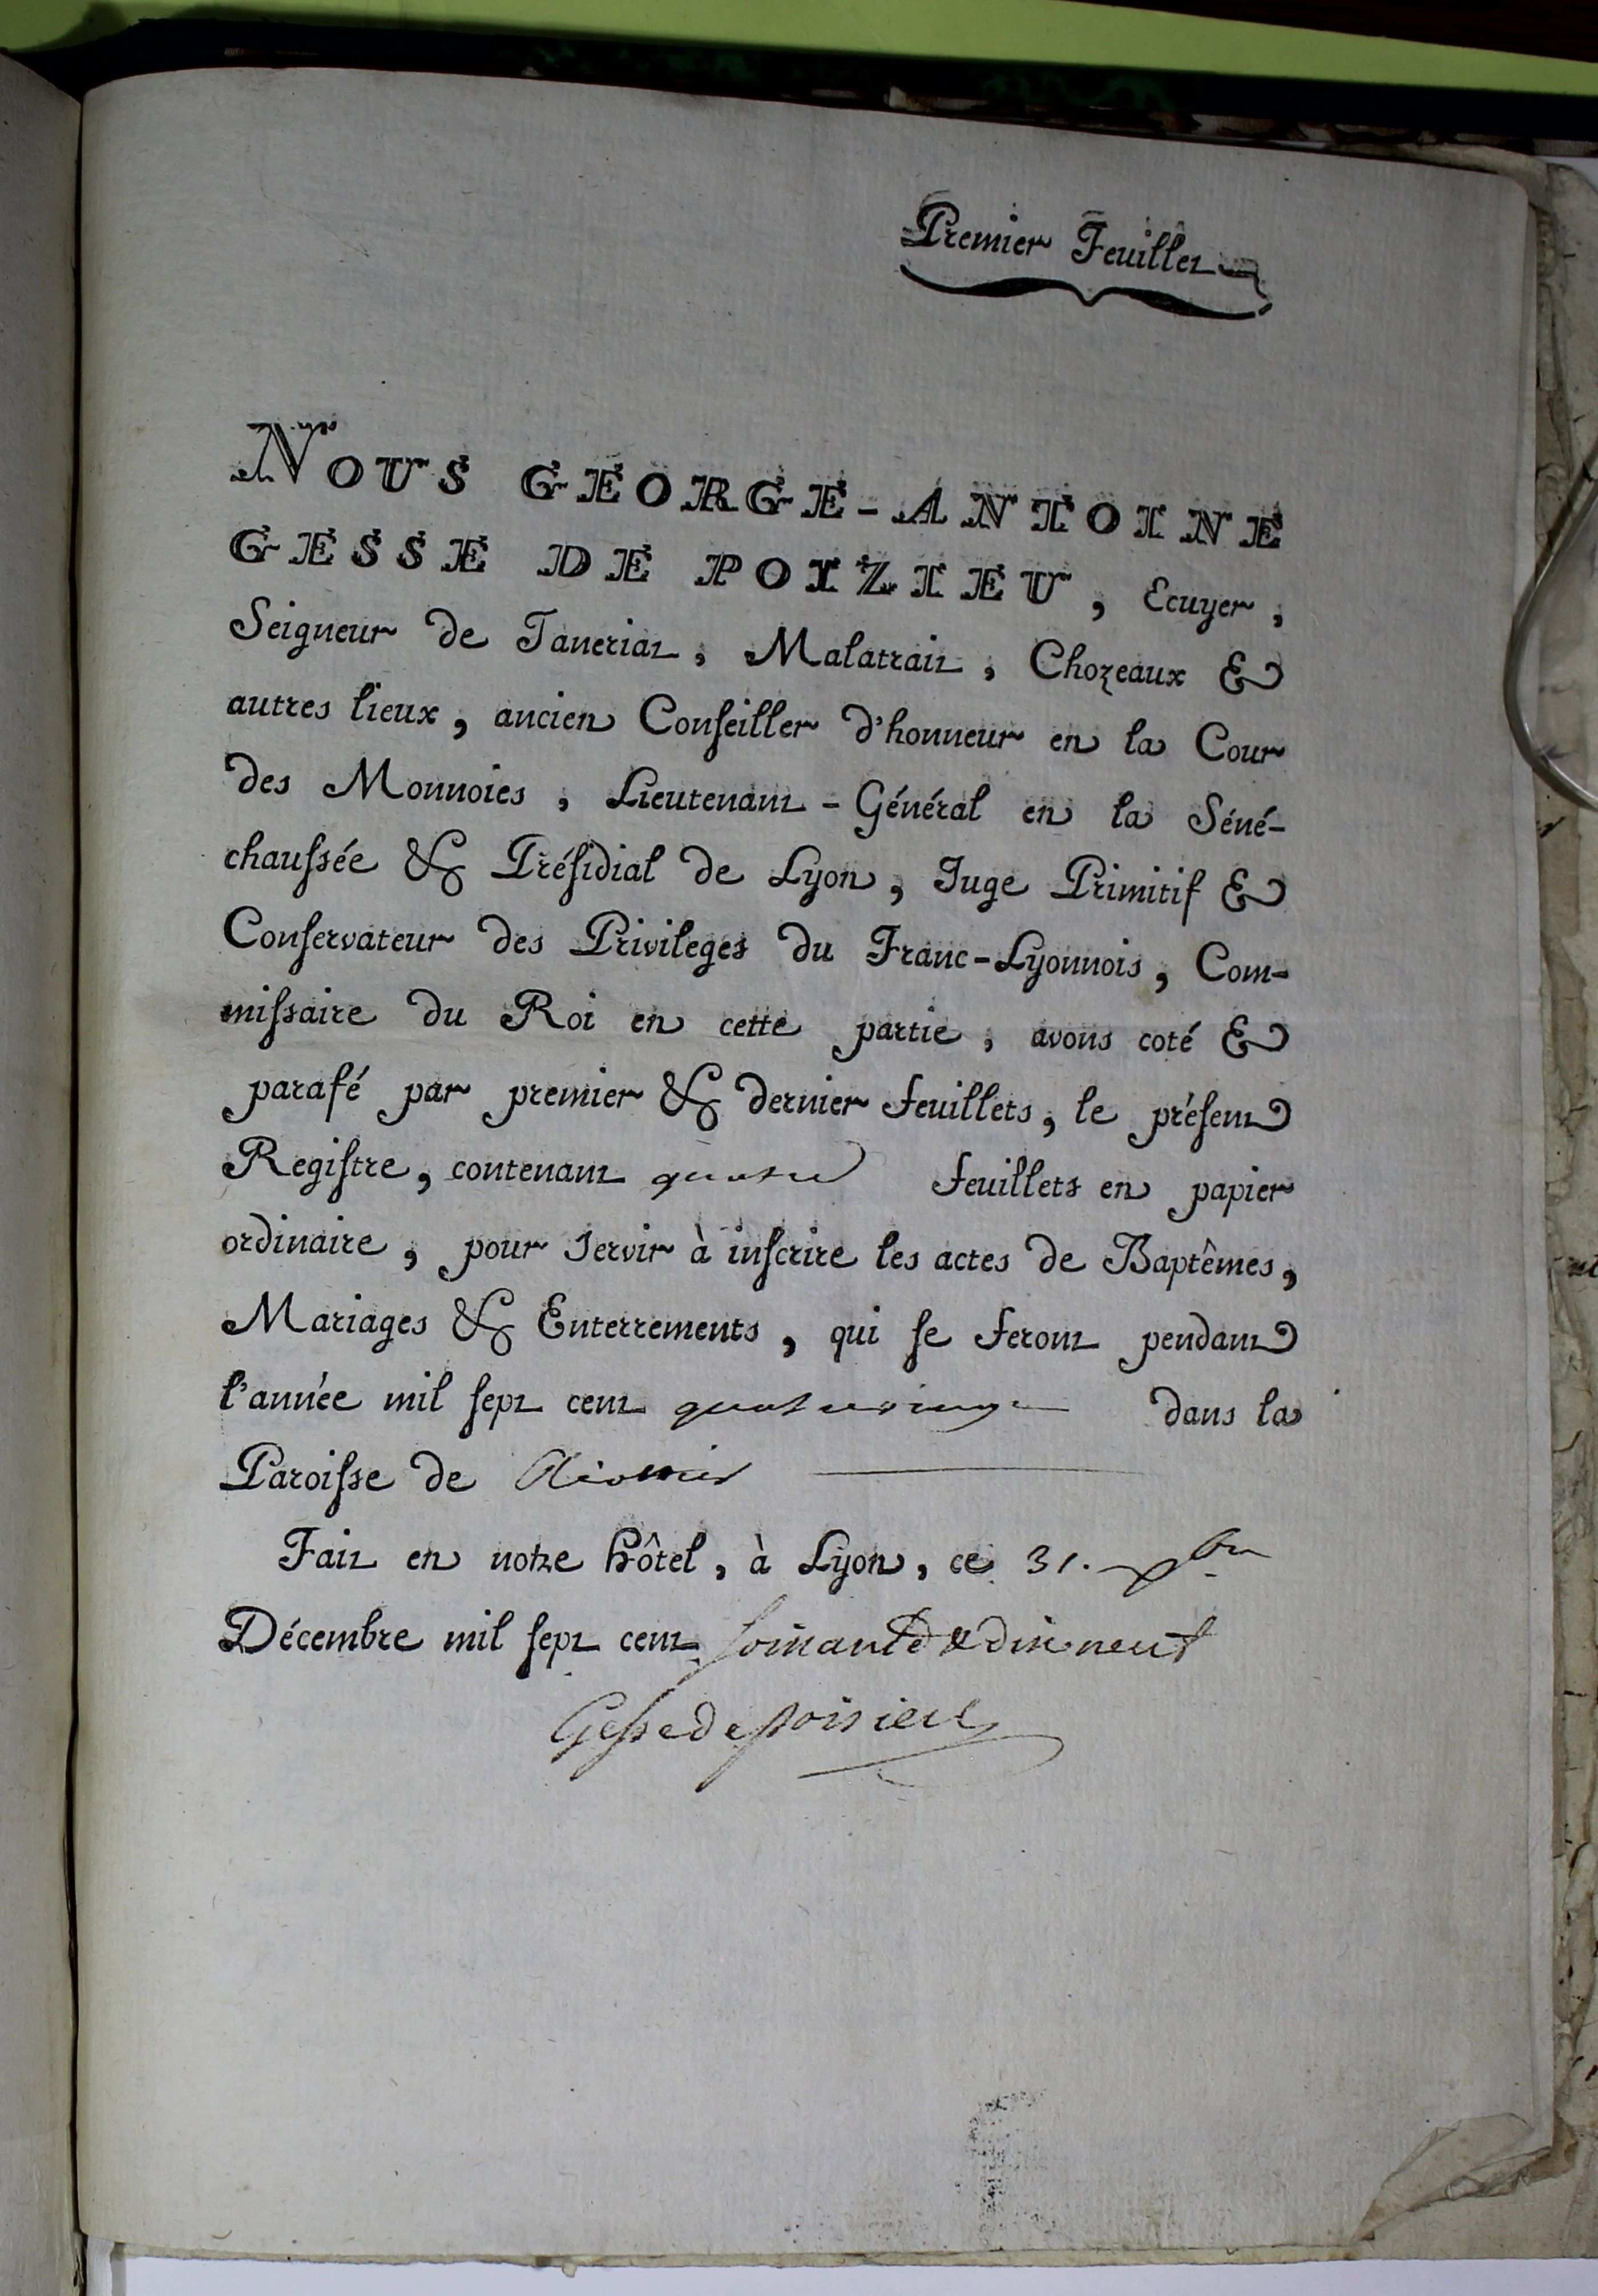 Premier Feuillet
NOUS GEORGE-ANTOINE
GESSE DE POIZIEU, Ecuyer,
Seigneur de Janeriat, Malatrait, Chozeaux &
autres lieux, ancien Conseiller d'honneur en la Cour
des Monnoies, Lieutenant-Général en la Séné-
chaussée & Présidial de Lyon, Juge Primitif &
Conservateur des Privileges du Franc-Lyonnois, Com-
missaire du Roi en cette partie, avons coté &
parafé par premier & dernier feuillets, le présent
Registre, contenant quatre feuillets en papier
ordinaire, pour servir à inscrire les actes de Baptêmes,
Mariages & Enterrements, qui se feront pendant
l'année mil sept cent quatrevingt dans la
Paroisse de
Fait en notre hôtel, à Lyon, ce 31. xbre
Décembre mil sept cent soixante & dix neuf
Gesse de poisieu